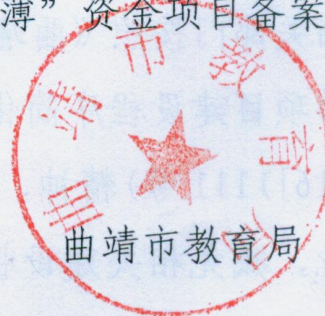 薄”资金项目备案
曲靖市教育局
曲靖市教育局